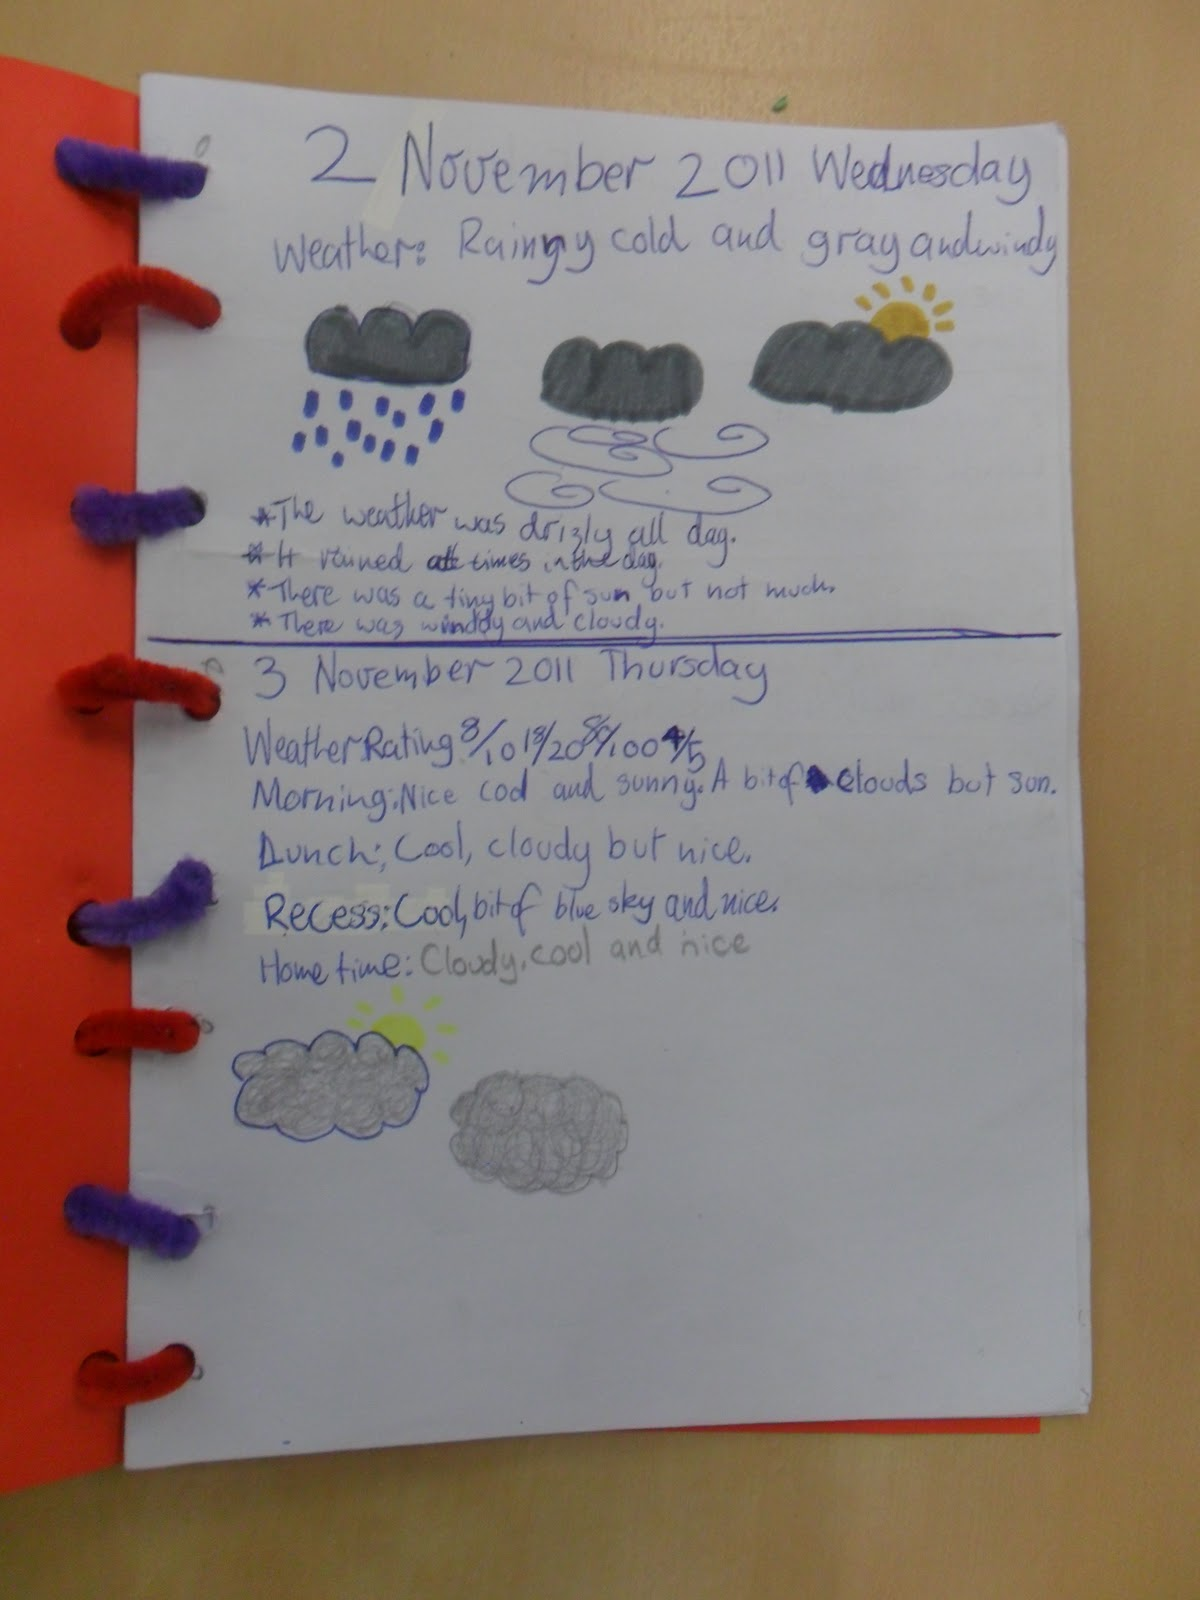 2 November 2011 Wednesday
Weather: Rainyy cold and gray and windy
*The weather was drizly all day.
*It rained at times in the day.
*There was a tiny bit of sun but not much.
*There was winddy and cloudy.
3 November 2011 Thursday
Weather Rating 8/10 18/20 80/100 4/5
Morning: Nice cool and sunny. A bit of clouds but sun.
Lunch: Cool, cloudy but nice.
Recess: Cool, bit of blue sky and nice.
Home time: Cloudy, cool and nice